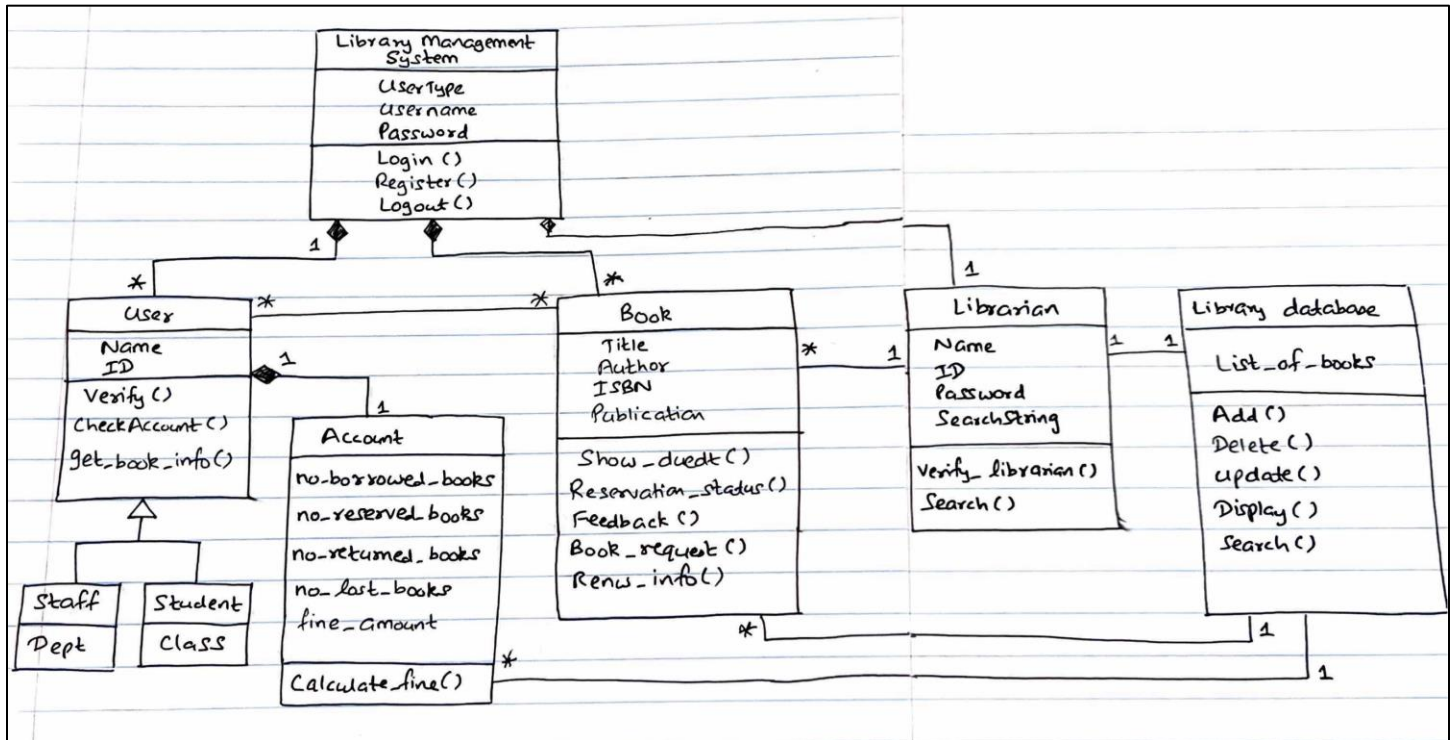 Library Management
System
UserType
Username
Password
Login ()
Register ()
Logout ()
1
*
*
1
User
Name
ID
Verify ()
CheckAccount ()
get_book_info()
*
*
1
1
Staff
Dept
Student
Class
Account
no-borrowed_books
no_reserved_books
no_returned_books
no_lost_books
fine_amount
Calculate_fine()
Book
Title
Author
ISBN
Publication
Show_duedt ()
Reservation_status()
Feedback ()
Book_request ()
Renw_info()
*
1
Librarian
Name
ID
Password
SearchString
Verify_librarian()
Search ()
1
1
Library database
List_of_books
Add ()
Delete ()
update ()
Display ()
Search ()
*
1
*
1